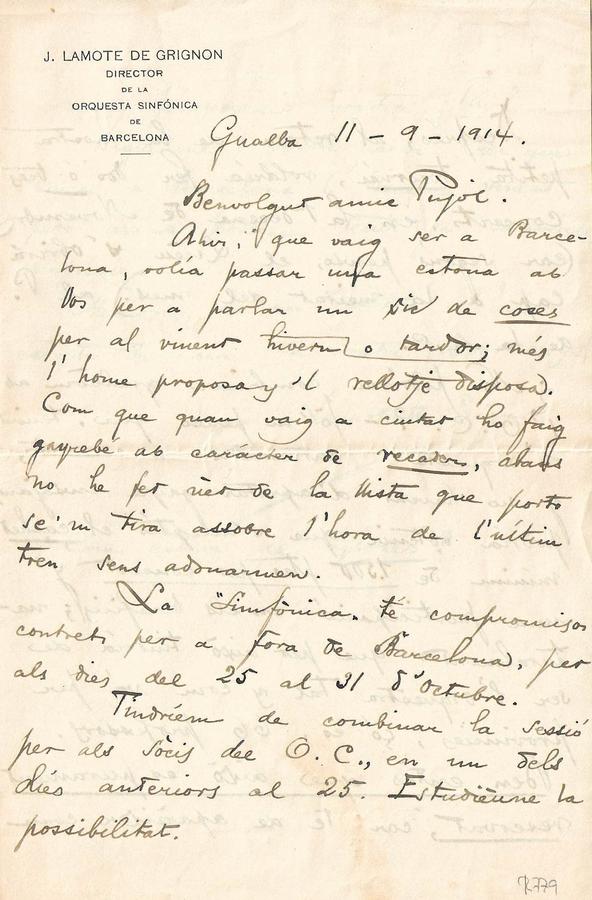 J. LAMOTE DE GRIGNON
DIRECTOR
DE LA
ORQUESTA SINFÓNICA
DE
BARCELONA
Gualba 11 - 9 - 1914.
Benvolgut amic Pujol.
Ahir, que vaig ser a Barce-
lona, volía passar una estona ab
Vos per a parlar un xic de coses
per al vinent hivern o tardor; més
l'home proposa y 'l rellotje disposa.
Com que quan vaig a ciutat ho faig
gayrebé ab carácter de recader, abans
no he fet nét de la llista que porto
se'm tira assobre l'hora de l'últim
tren sens adonarmen.
La "Simfònica" té compromisos
contrets per a fora de Barcelona, per
als dies del 25 al 31 d'Octubre.
Tindríem de combinar la sessió
per als sòcis del O. C., en un dels
díes anteriors al 25. Estudièune la
possibilitat.
K.779